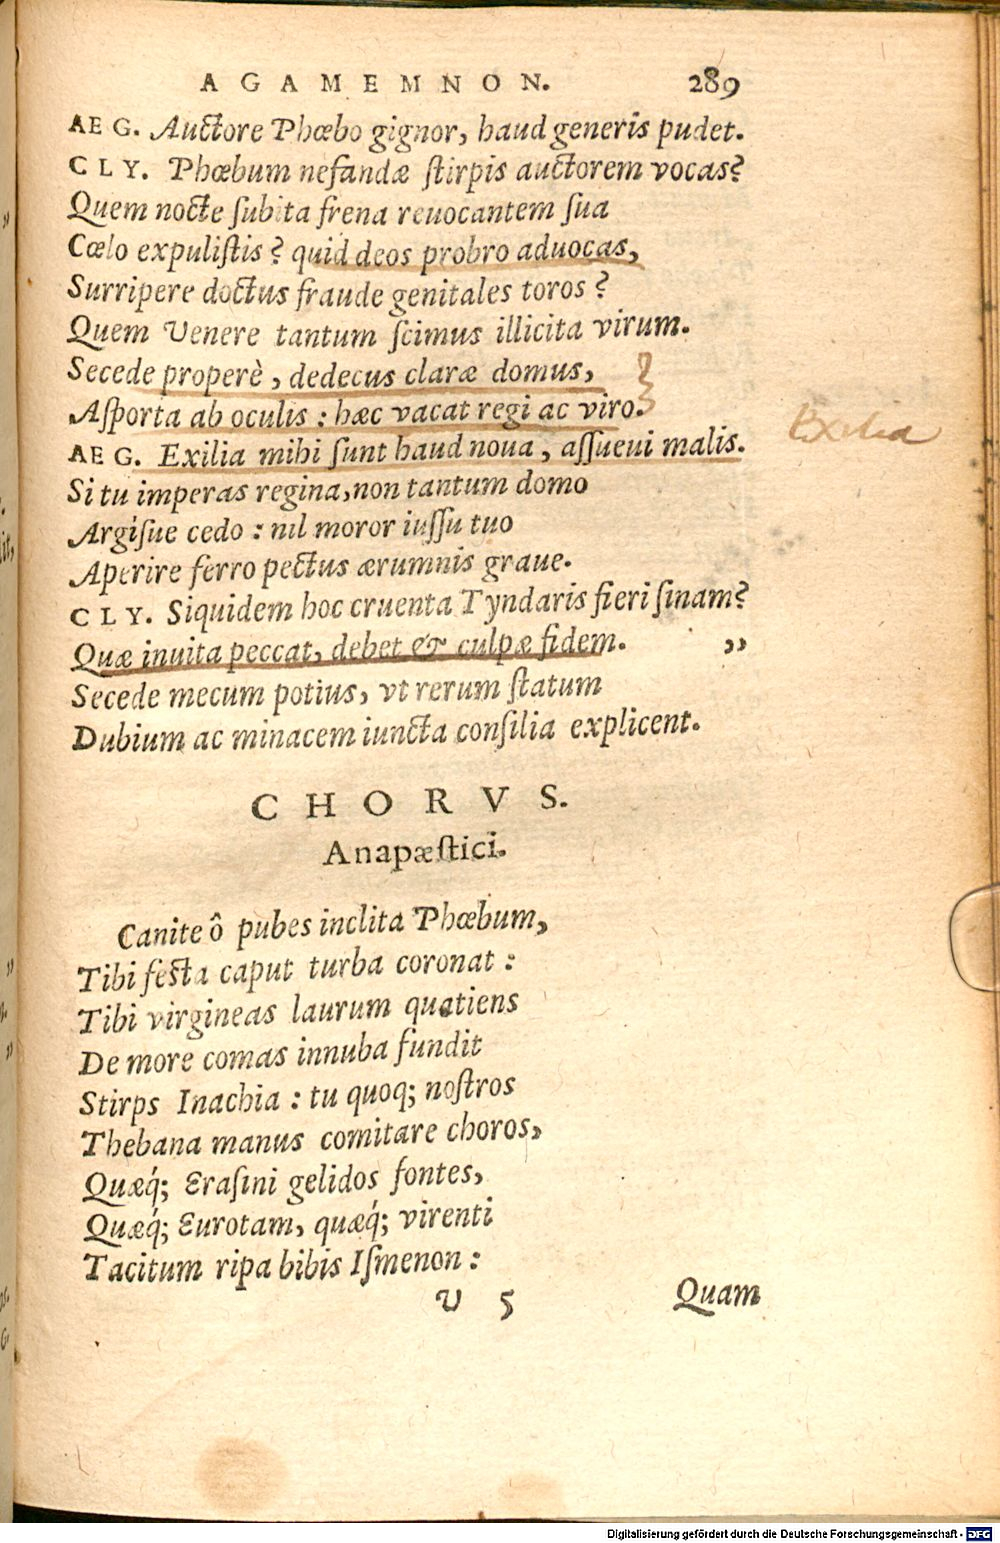 AGAMEMNON. 289
AEG. Auctore Phœbo gignor, haud generis pudet.
CLY. Phœbum nefandæ ſtirpis auctorem vocas?
Quem nocte ſubita frena reuocantem ſua
Cœlo expuliſtis? quid deos probro aduocas,
Surripere doctus fraude genitales toros?
Quem Venere tantum ſcimus illicita virum.
Secede properè, dedecus claræ domus,
Aſporta ab oculis: hæc vacat regi ac viro.
Exilia
AEG. Exilia mihi ſunt haud noua, aſſueui malis.
Si tu imperas regina, non tantum domo
Argiſue cedo: nil moror iuſſu tuo
Aperire ferro pectus ærumnis graue.
CLY. Siquidem hoc cruenta Tyndaris fieri ſinam?
Quæ inuita peccat, debet & culpæ fidem. „
Secede mecum potius, vt rerum ſtatum
Dubium ac minacem iuncta conſilia explicent.
CHORVS.
Anapæſtici.
Canite ô pubes inclita Phœbum,
Tibi feſta caput turba coronat:
Tibi virgineas laurum quatiens
De more comas innuba fundit
Stirps Inachia: tu quoq; noſtros
Thebana manus comitare choros,
Quæq́; Eraſini gelidos fontes,
Quæq́; Eurotam, quæq́; virenti
Tacitum ripa bibis Iſmenon:
V 5 Quam
Digitalisierung gefördert durch die Deutsche Forschungsgemeinschaft - DFG